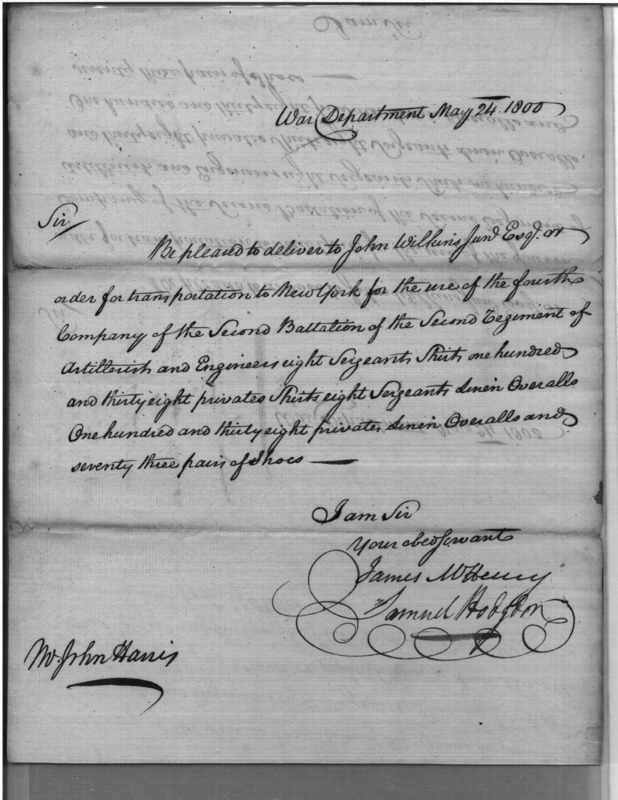 War Department May 24. 1800
Sir
Be pleased to deliver to John Wilkins Junr Esqr. or
order for transportation to New York for the use of the fourth
Company of the Second Battation of the Second Regiment of
Artillerists and Engineers eight Sergeants Shirts one hundred
and thirty eight privates Shirts eight Sergeants Linen Overalls
One hundred and thirty eight privates Linen Overalls and
seventy three pairs of Shoes —
I am Sir
Your obed Servant
James McHenry
Samuel Hodgdon
Mr. John Harris